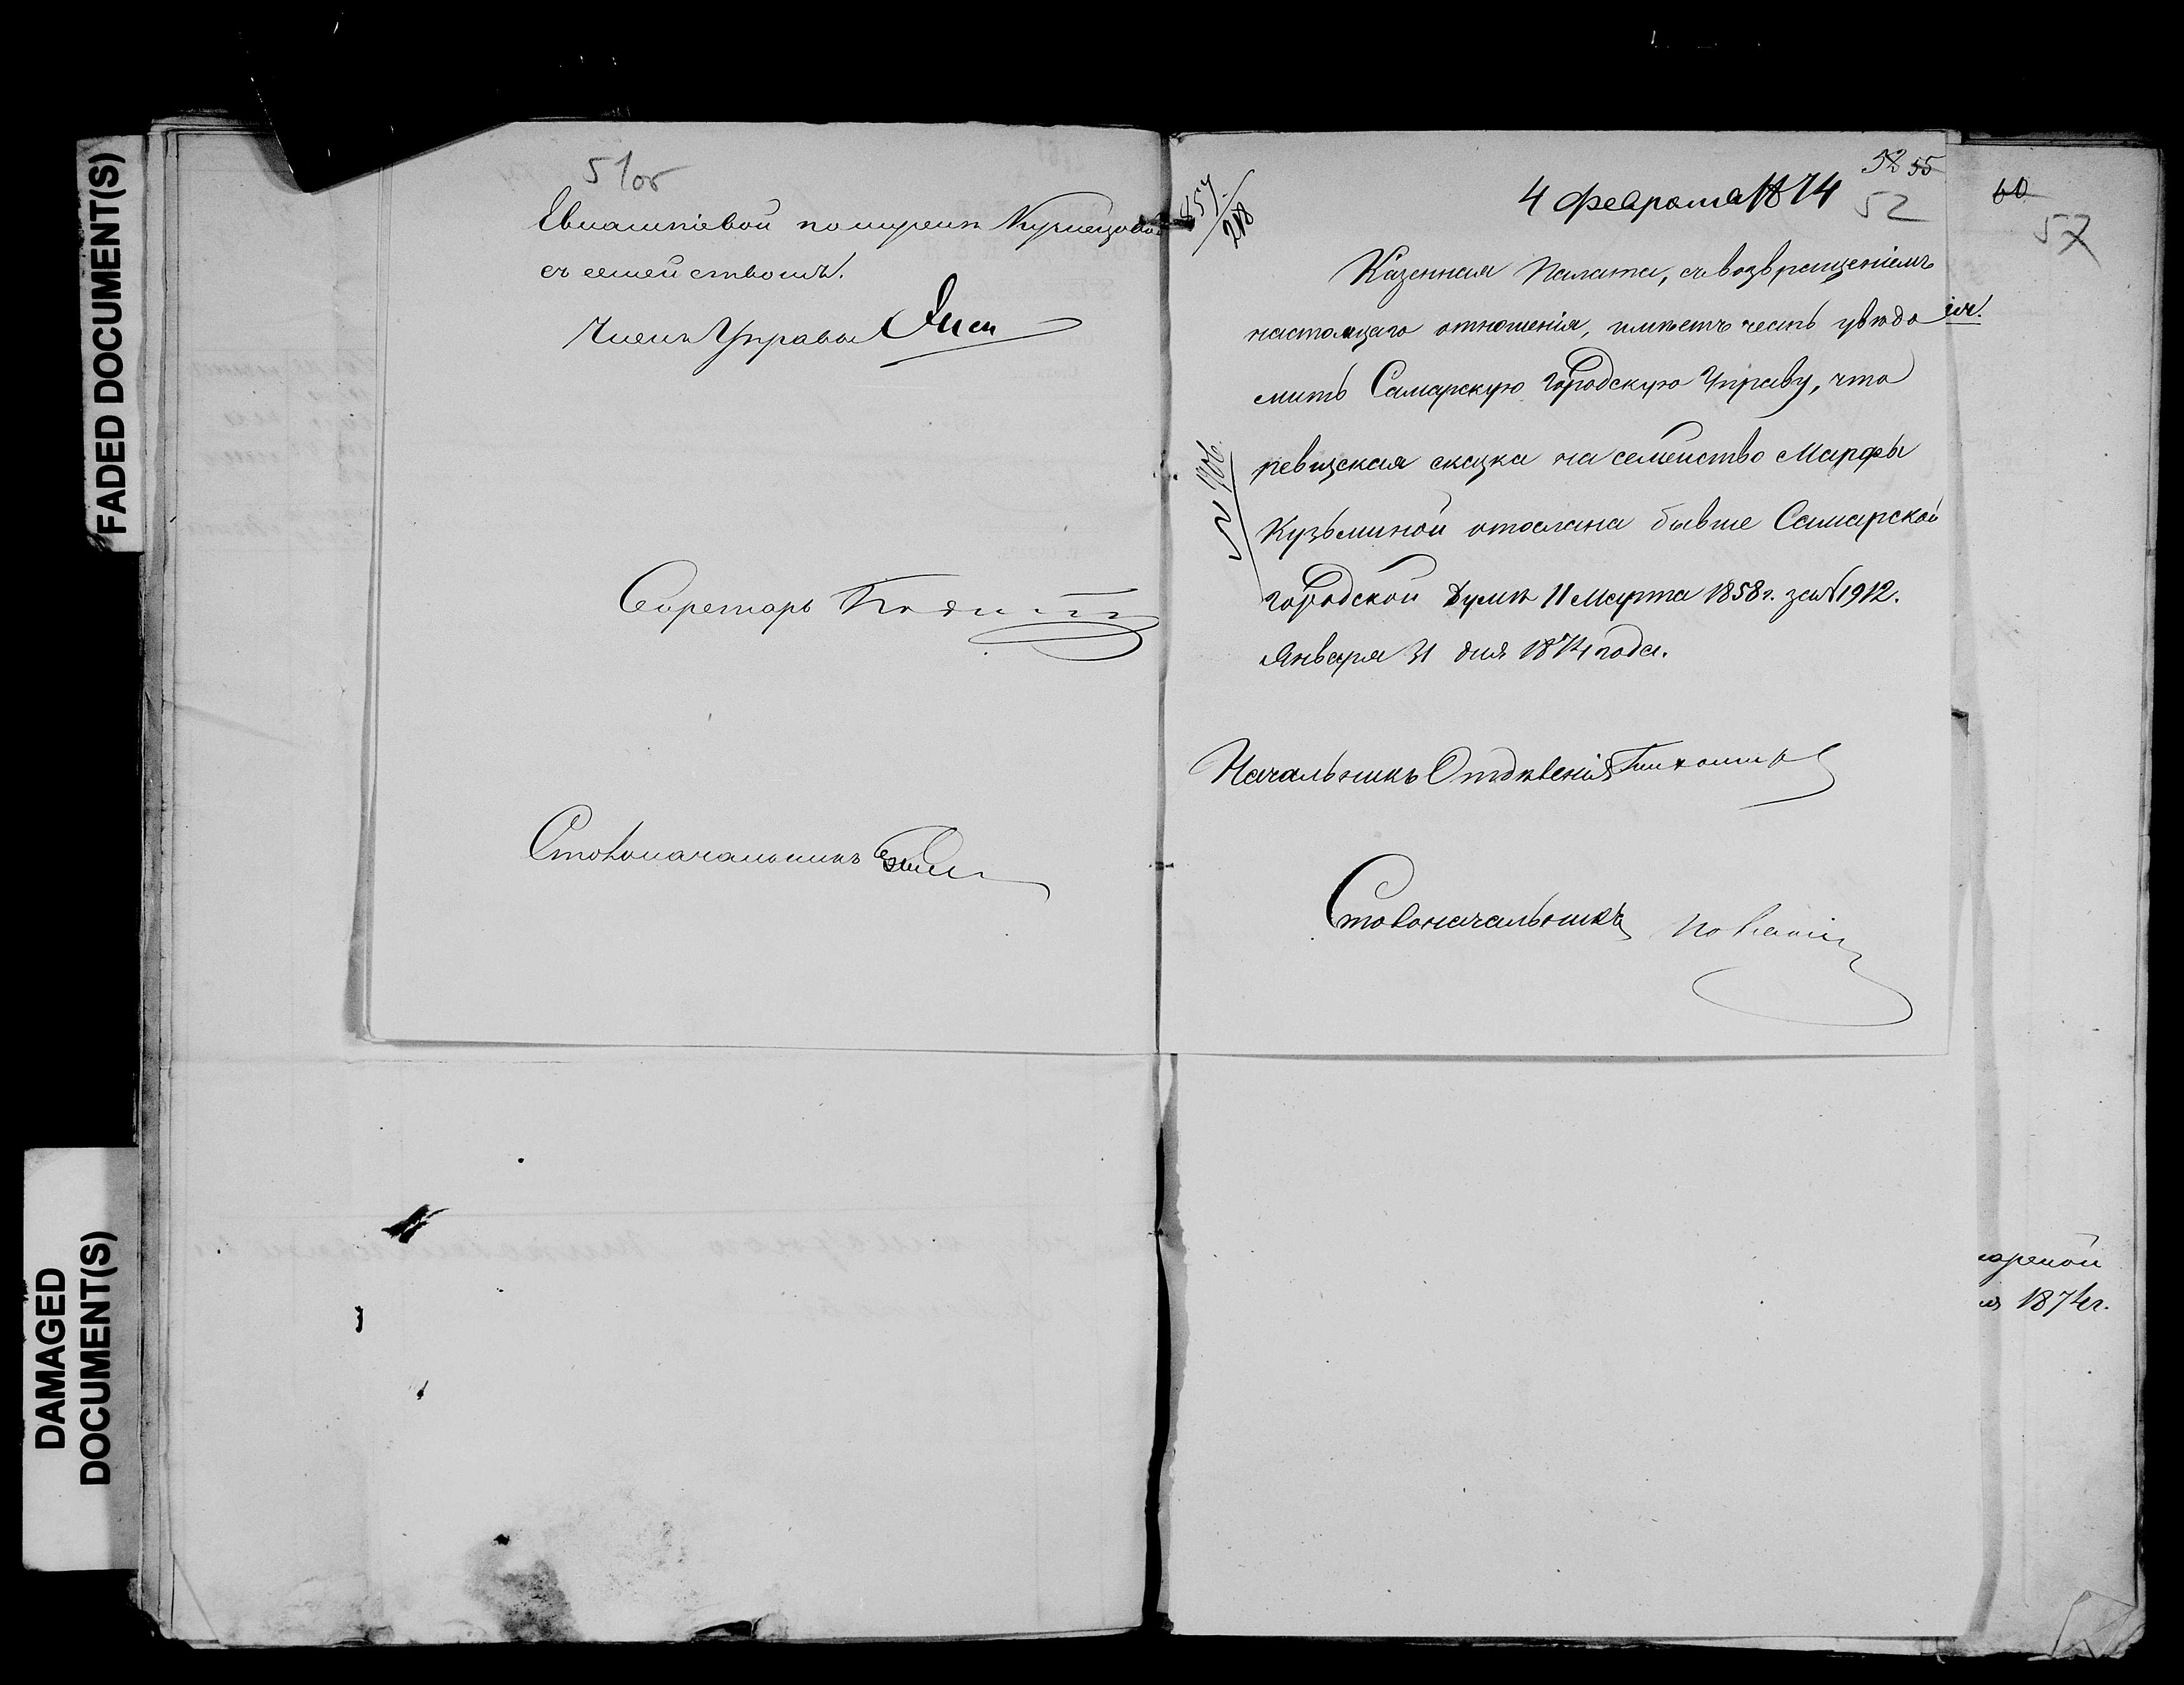 FADED DOCUMENT(S)
DAMAGED
DOCUMENT(S)
51об
по мужу
съ семействомъ.
Членъ Управы
Секретарь
Столоначальникъ
457/218
4 Февраля 1874
52 55
52
Казенная Палата, съ возвращеніемъ
настоящаго отношенія, имѣетъ честь увѣдо
мить Самарскую Городскую Управу, что
ревизская сказка на семейство Марфы
Кузьминой отослана бывше Самарской
Городской Думѣ 11 Марта 1858 г. за N 1912.
Января 31 дня 1874 года.
N 906
Начальникъ Отдѣленія
Столоначальникъ
60
57
1874 г.